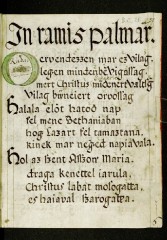 In ramis palmar.
ervendezzen mar ez világ.
legen mindenbe vigassag.
mert Christus mindenert
Vilag bwneiert orvossag
Halala elöt hatod nap
fel mene Bethaniaban
hog Lazart fel tamaztana.
kinek mar neged napia vala.
Hol az szent Aszzor Maria.
draga kenettel iarula,
Christus labat mosogatta,
es haiaval